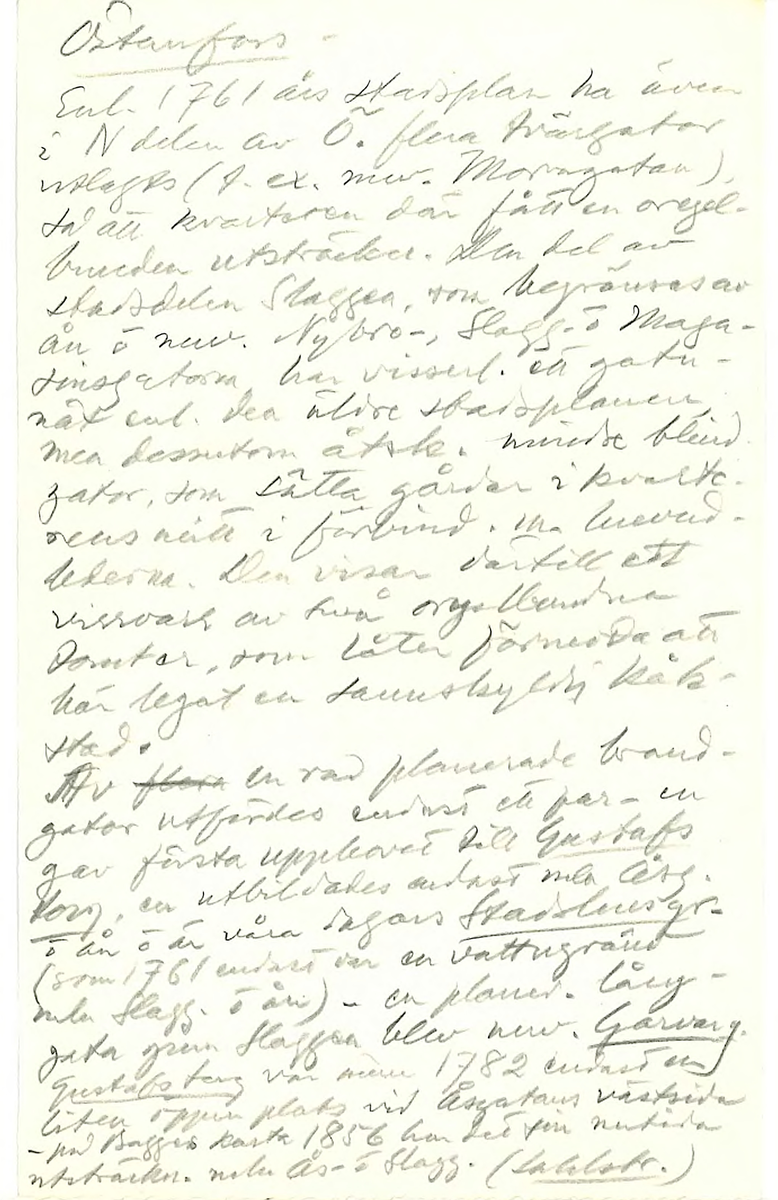 Östanfors -
Enl. 1761 års stadsplan ha även
i N delen av Ö. flera tvärgator
utlagts (t. ex. nuv. Moragatan),
så att kvarteren där fått en oregel-
bunden utsträckn. Den del av
stadsdelen Slaggen, som begränsas av
ån o nuv. Nybro-, Slagg- o Maga-
sinsgatorna, har visserl. ett gatu-
nät enl. den äldre stadsplanen,
men dessutom åtsk. mindre blind-
gator, som sätta gårdar i kvarte-
rens mitt i förbind. m. huvud-
lederna. Den visar därtill ett
virrvarr av små oregelbundna
tomter, som låter förmoda att
här legat en sannskyldig kåk-
stad.
Av flera en rad planerade brand-
gator utfördes endast ett par - en
gav första upphovet till Gustafs
torg, en utbildades endast mln Åsg.
o ån o är våra dagars Stadshusgr.
(som 1761 endast var en vattugränd
mln Slagg. o ån) - en planer. lång-
gata genom Slaggen blev nuv. Garvarg.
Gustafs torg var ännu 1782 endast en
liten öppen plats vid Åsgatans västsida
- på Bagges karta 1856 har det sin nutida
utsträckn. mln Ås- o Slagg. (Sahlstr.)